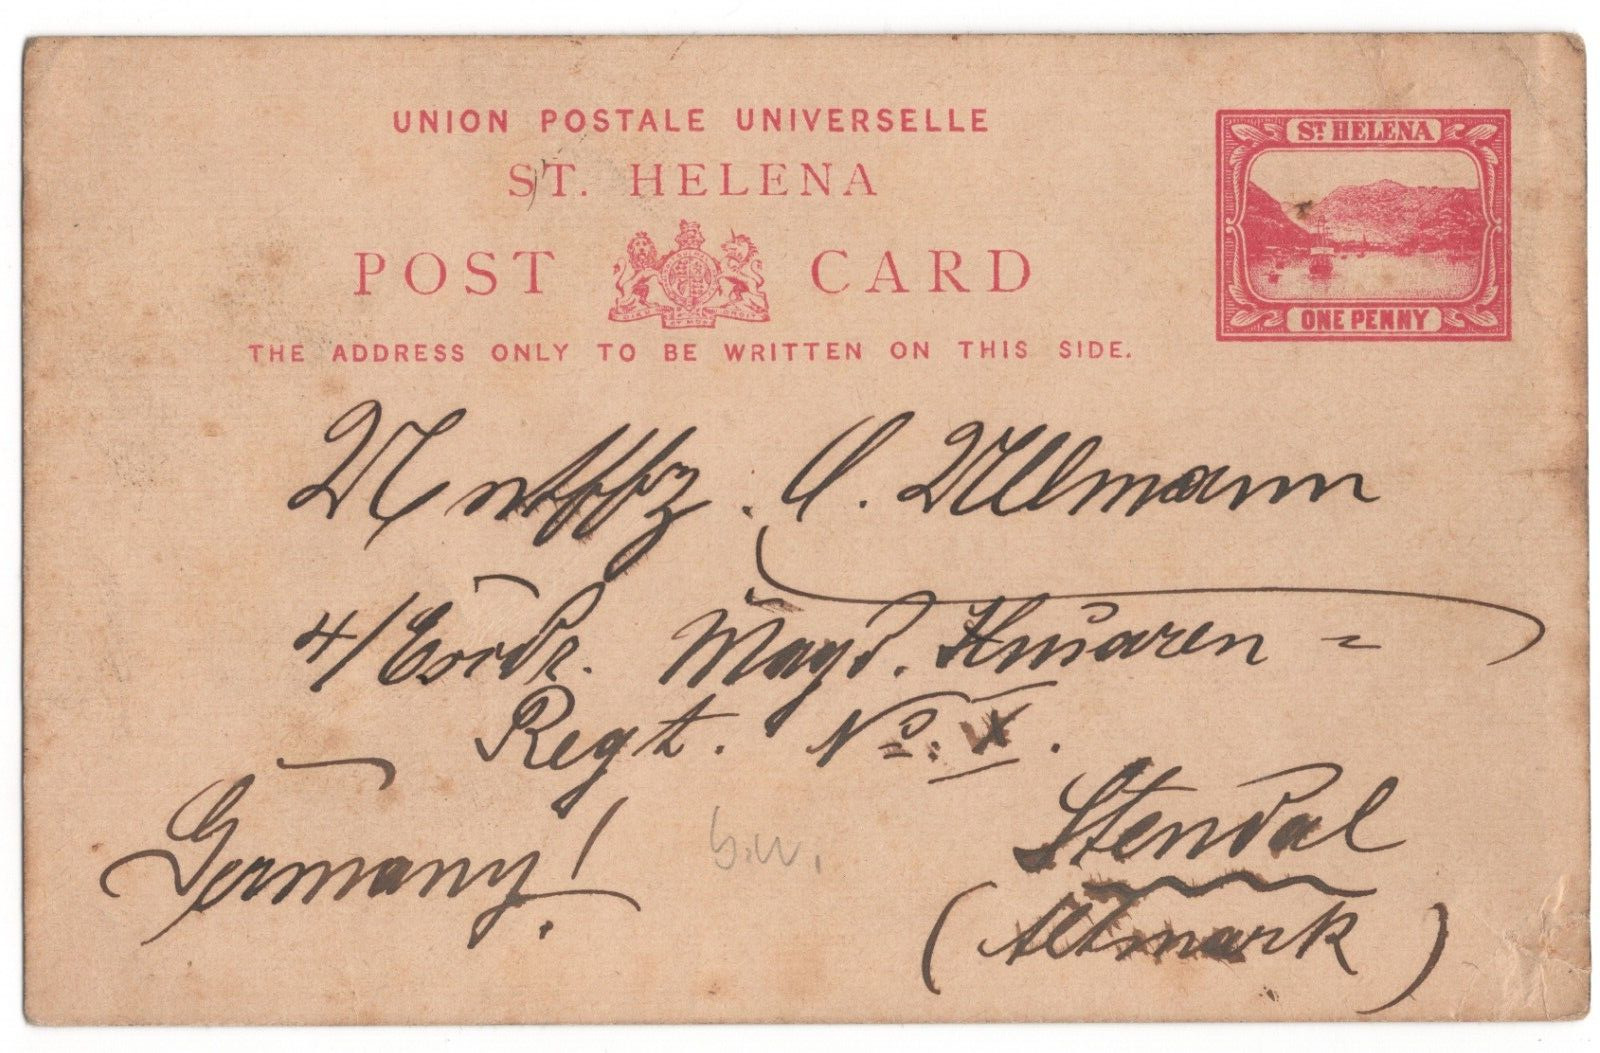 UNION POSTALE UNIVERSELLE
ST. HELENA
POST CARD
THE ADDRESS ONLY TO BE WRITTEN ON THIS SIDE.
ST. HELENA
ONE PENNY
DIEU ET MON DROIT
Untffz. O. Ullmann
4/ Magd. Husaren-
Regt. No. X.
Stendal
(Altmark)
Germany!